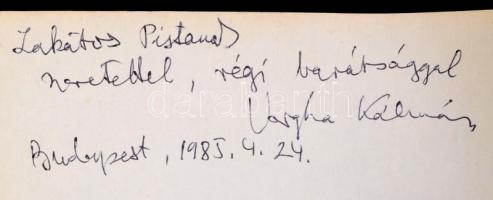 Lakatos Pistának
szeretettel, régi barátsággal
Vargha Kálmán
Budapest, 1985. 4. 24.